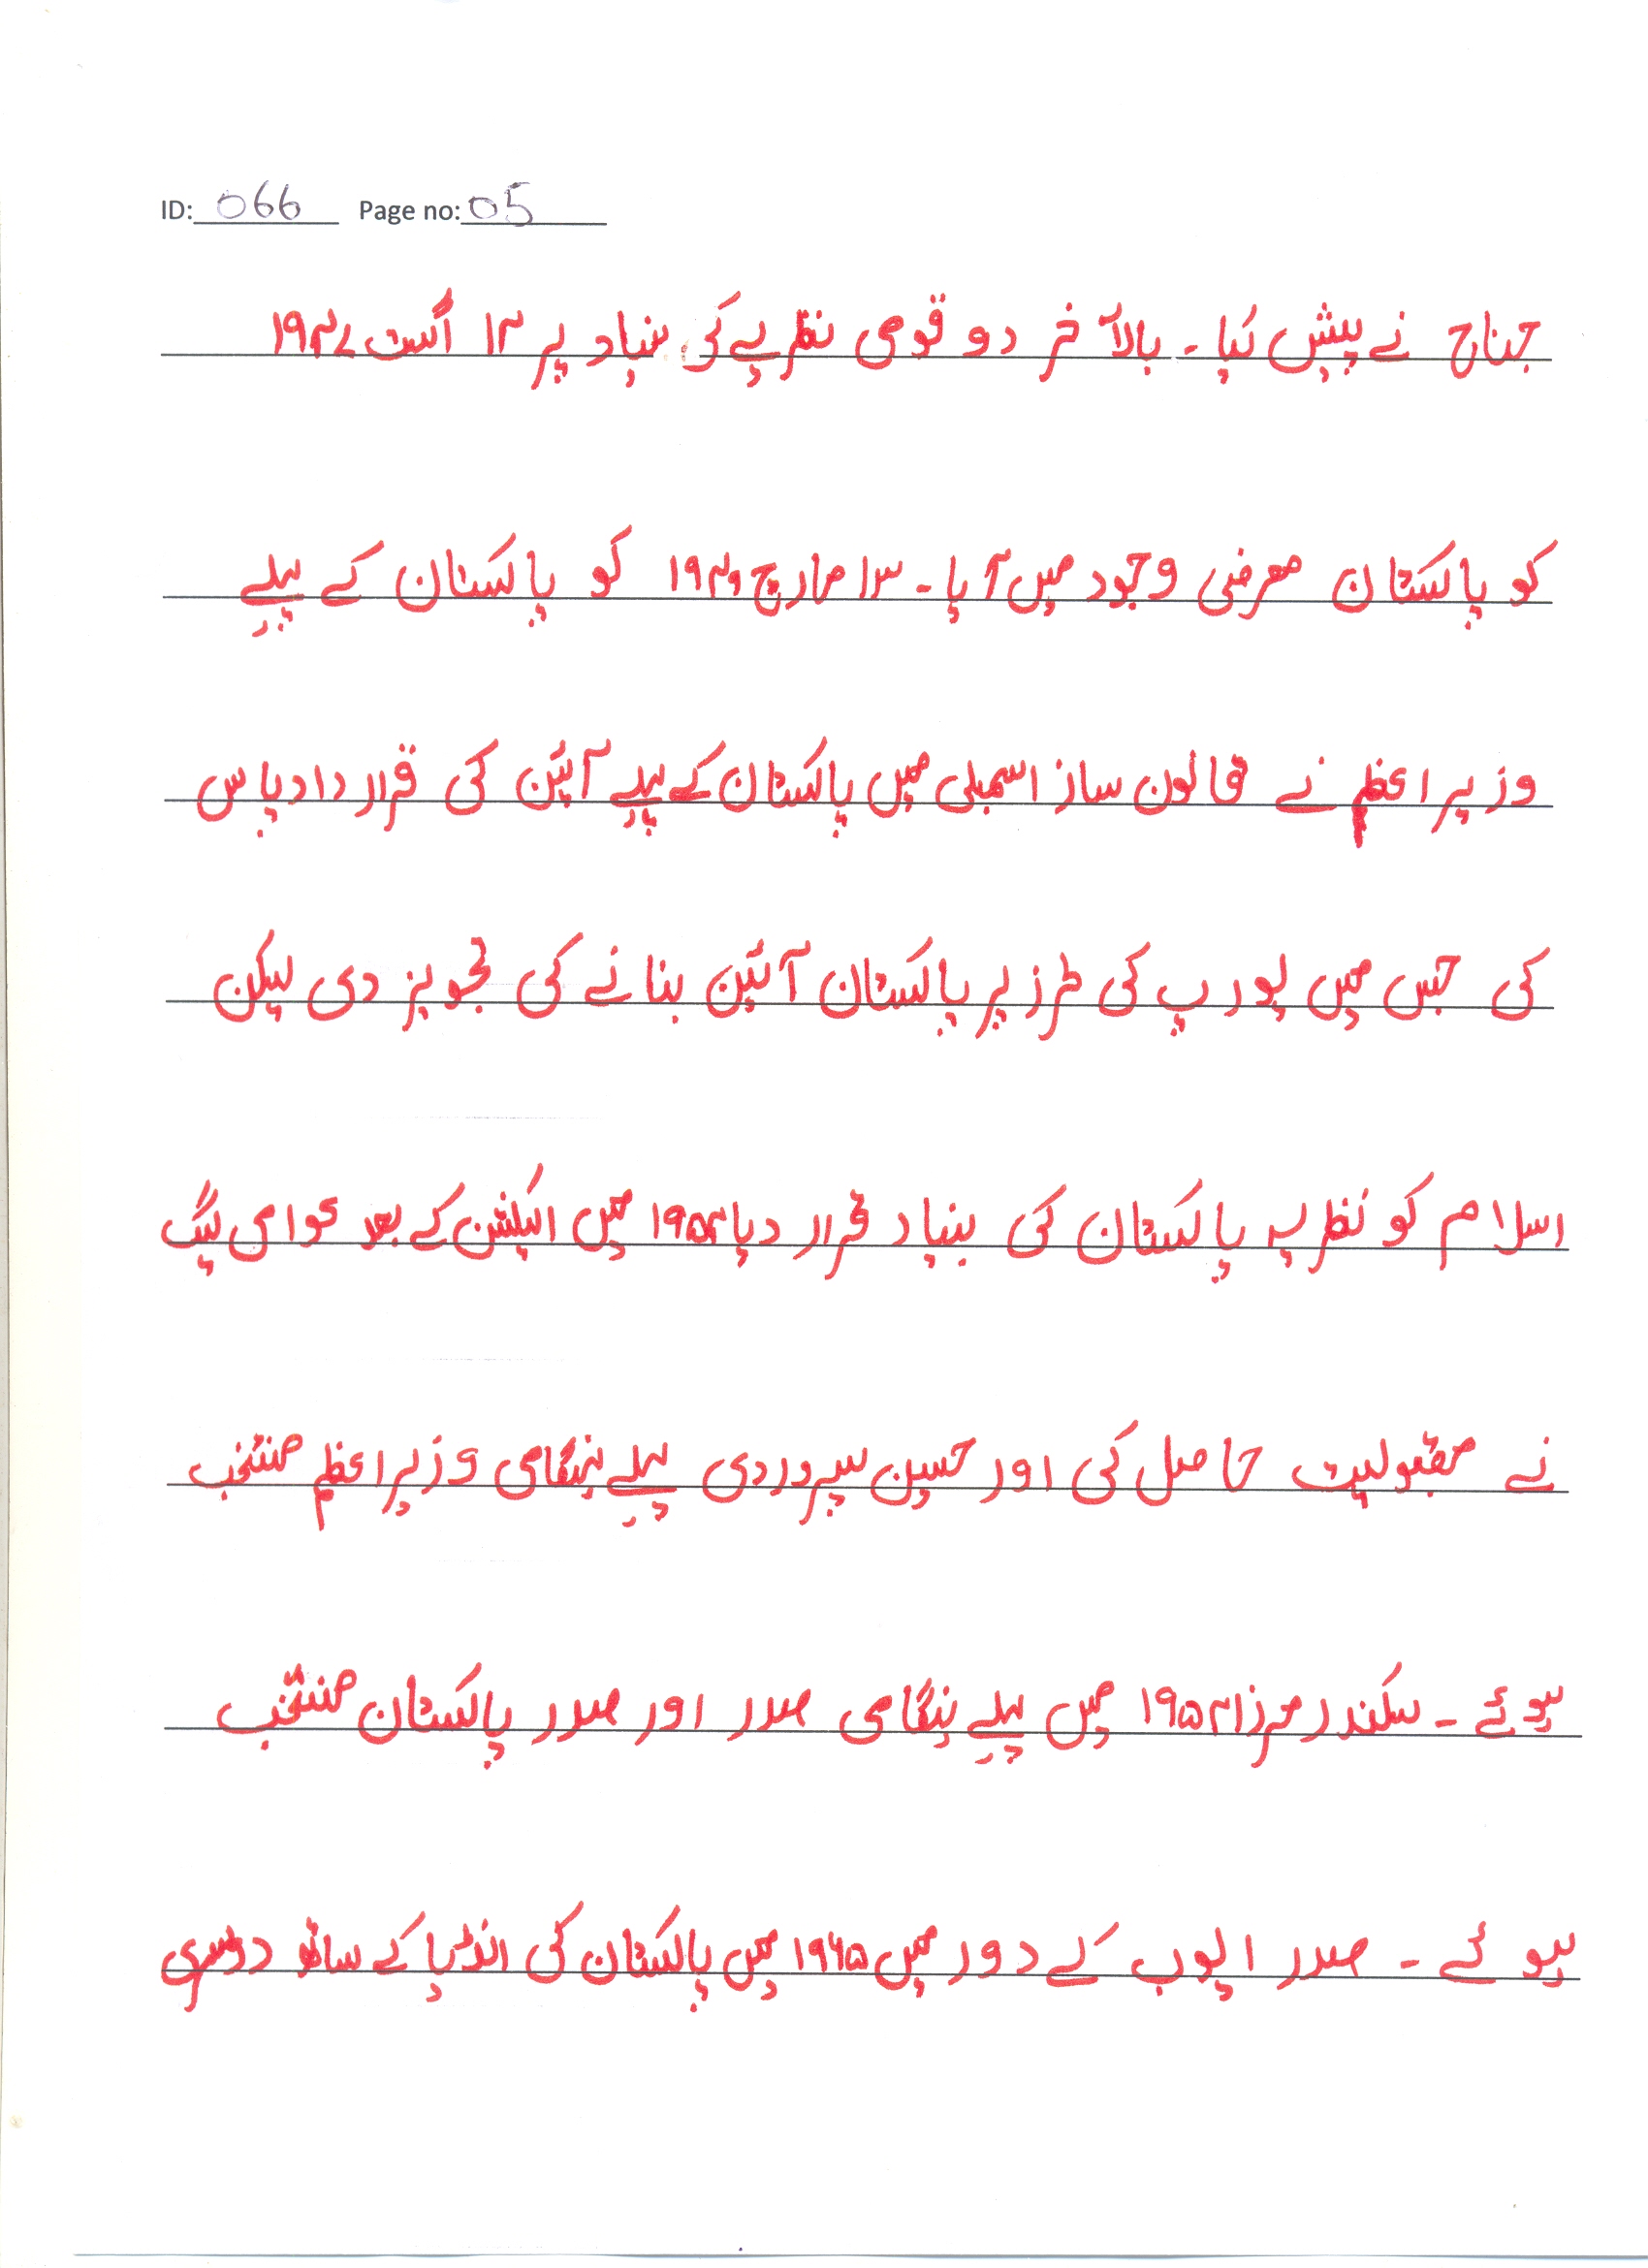 ID: 066 Page no: 05
جناح نے پیش کیا ۔ بالآخر دو قومی نظریے کی بنیاد پر ۱۴ اگست ۱۹۴۷
کو پاکستان معرضی وجود میں آیا ۔ ۱۳ مارچ ۱۹۴۹ کو پاکستان کے پہلے
وزیراعظم نے قانون ساز اسمبلی میں پاکستان کے پہلے آئین کی قرارداد پاس
کی جس میں یورپ کی طرز پر پاکستان آئین بنانے کی تجویز دی لیکن
اسلام کو نظریہ پاکستان کی بنیاد قرار دیا ۱۹۵۴ میں الیکشن کے بعد عوامی لیگ
نے مقبولیت حاصل کی اور حسین سہروردی پہلے بنگامی وزیراعظم منتخب
ہوئے ۔ سکندر مرزا ۱۹۵۴ میں پہلے بنگامی صدر اور صدر پاکستان منتخب
ہوئے ۔ صدر ایوب کے دور میں ۱۹۶۵ میں پاکستان کی انڈیا کے ساتھ دوسری